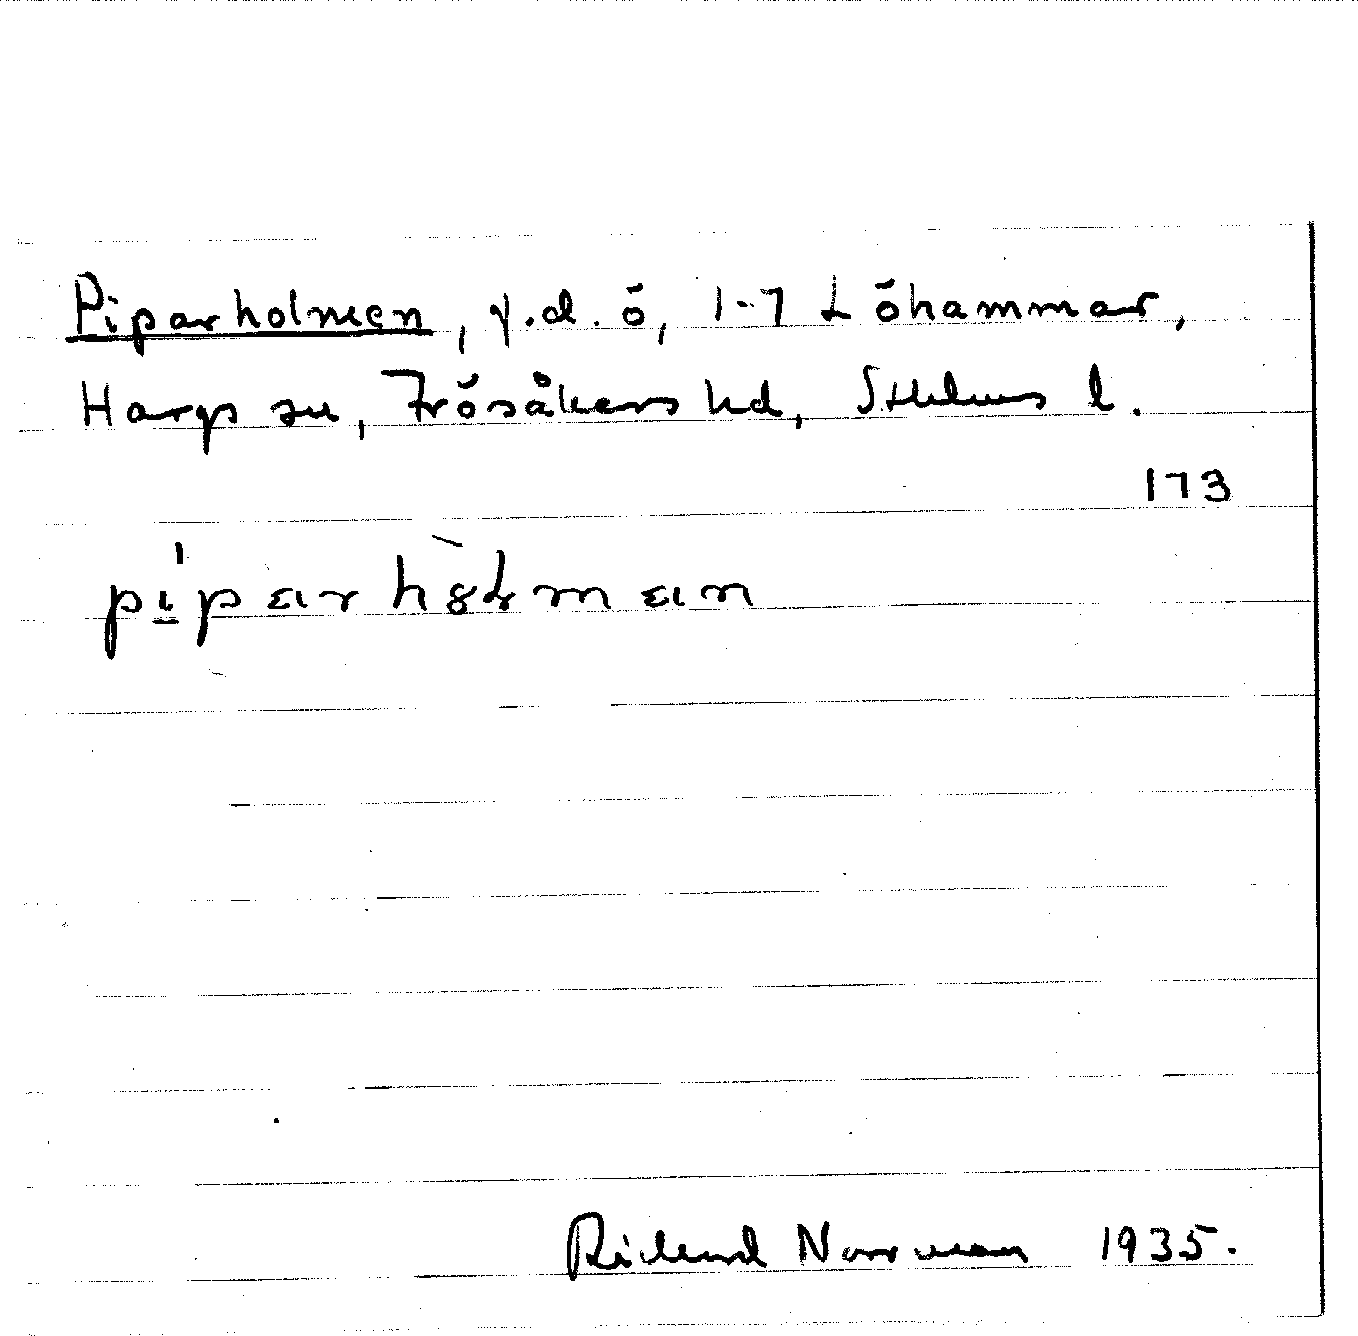 Piparholmen, y.d. ö, 1-7 Löhammar,
Hargs sn, Frösåkers hd, Sthlms l.
173
pipar holman
Rikard Norrman 1935.